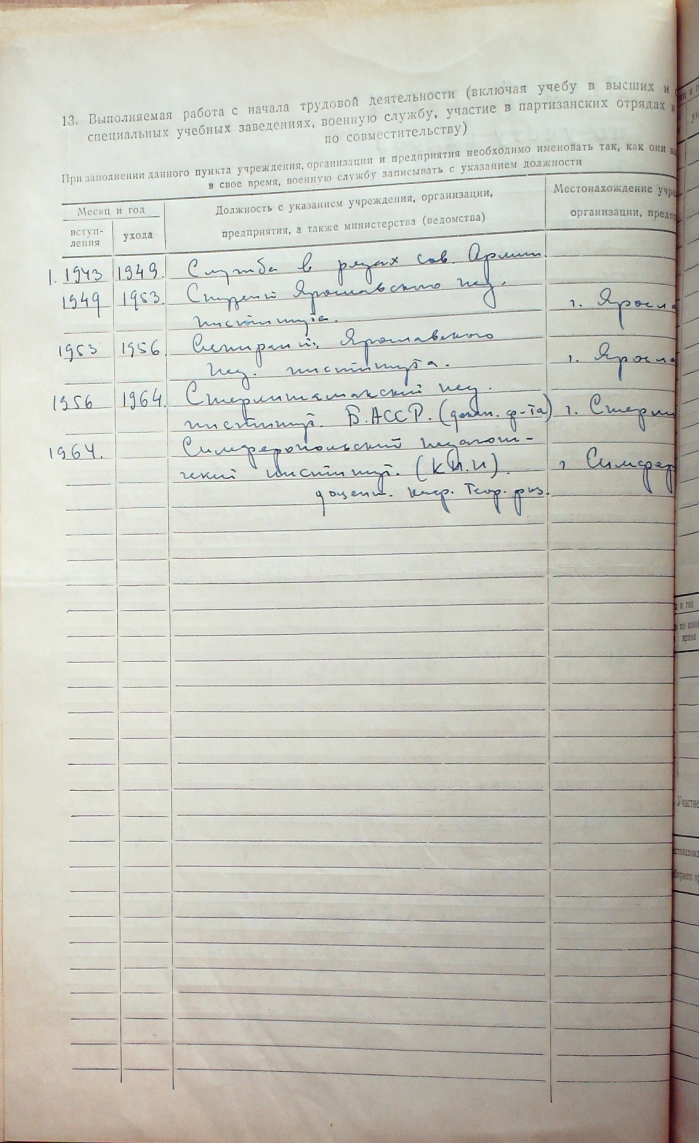 13. Выполняемая работа с начала трудовой деятельности (включая учебу в высших и
специальных учебных заведениях, военную службу, участие в партизанских отрядах
по совместительству)
При заполнении данного пункта учреждения, организации и предприятия необходимо именовать так, как они
в свое время, военную службу записывать с указанием должности
Месяц и год
вступ-
ления
ухода
Должность с указанием учреждения, организации,
предприятия, а также министерства (ведомства)
Местонахождение учре
организации, предп
1. 1943 1949. Служба в рядах сов. Армии
1949 1953. Студент Ярославского пед.
института. г. Яросла
1953 1956. Аспирант Ярославского
пед. института. г. Яросла
1956 1964. Стерлитамакский пед.
институт. Б.АССР. (декан. ф-та) г. Стерли
1964. Симферопольский педагоги-
ческий институт. (К.П.И). г Симфер
доцент. каф. Теор. физ.